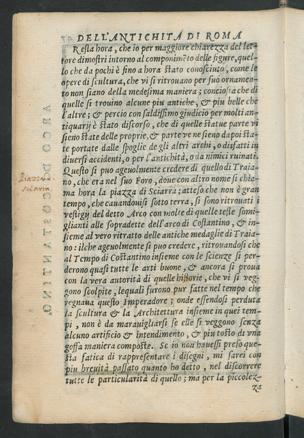 DELL'ANTICHITA DI ROMA
Resta hora, che io per maggiore chiarezza del let-
tore dimostri intorno al componimēto delle figure, quel-
lo che da pochi è fino a hora stato conosciuto, come le
opere di scultura, che vi si ritrovano per suo ornamen-
to non siano della medesima maniera; conciosia che di
quelle si trovino alcune piu antiche, & piu belle che
l'altre; & percio con saldissimo giudicio per molti an-
tiquarij è stato discorso, che di quelle statue parte vi
sieno state delle proprie, & parte ve ne sieno da poi sta-
te portate dalle spoglie de gli altri archi, o disfatti in
diversi accidenti, o per l'antichità, o da nimici ruinati.
Questo si puo agevolmente credere di quello di Traia-
no, che era nel suo Foro, dove con altro nome si chia-
ma hora la piazza di Sciarra; atteso che non è gran
tempo, che cavandovisi sotto terra, si sono ritrovati i
vestigij del detto Arco con molte di quelle teste somi-
glianti alle sopradette dell'arco di Costantino, & in-
sieme al vero ritratto delle antiche medaglie di Traia-
no: ilche agevolmente si puo credere, ritrovandosi che
al Tempo di Costantino insieme con le scienze si per-
derono quasi tutte le arti buone, & ancora si prova
con la vera autorità di quelle historie, che vi si veg-
gono scolpite, lequali furono pur fatte nel tempo che
regnava questo Imperadore; onde essendosi perduta
la scultura & la Architettura insieme in quei tem-
pi, non è da maravigliarsi se elle si veggono senza
alcuno artificio & intendimento, & piu tosto di una
goffa maniera composte. Se io non havessi preso que-
sta fatica di rappresentare i disegni, mi sarei con
piu brevità passato quanto ho detto, nel discorrere
tutte le particularità di quello; ma per la piccolez-
za
ARCO DI COSTANTINO